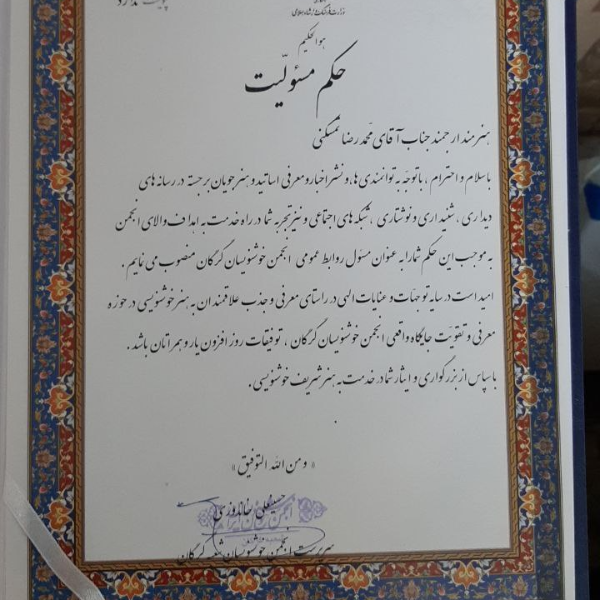 ندارد
وزارت فرهنگ و ارشاد اسلامی
هوالحکیم
حکم مسئولیّت
هنرمند ارجمند جناب آقای محمّد رضا تمسکنی
باسلام و احترام ، با توجّه به توانمندی ها، و نشر اخبار و معرفی اساتید و هنرجویان برجسته در رسانه های
دیداری ، شنیداری و نوشتاری ، شبکه های اجتماعی و نیز تجربه شما در راه خدمت به اهداف والای انجمن
به موجب این حکم شما را به عنوان مسئول روابط عمومی انجمن خوشنویسان گرگان منصوب می نمایم .
امید است در سایه توجهات و عنایات الهی در راستای معرفی و جذب علاقمندان به هنر خوشنویسی در حوزه
معرفی و تقویّت جایگاه واقعی انجمن خوشنویسان گرگان ، توفیقات روز افزون یار و همراتان باشد .
با سپاس از بزرگواری و ایثار شما در خدمت به هنر شریف خوشنویسی .
« ومن الله التوفیق »
حسینعلی خاندوزی
سرپرست انجمن خوشنویسان شعبه گرگان